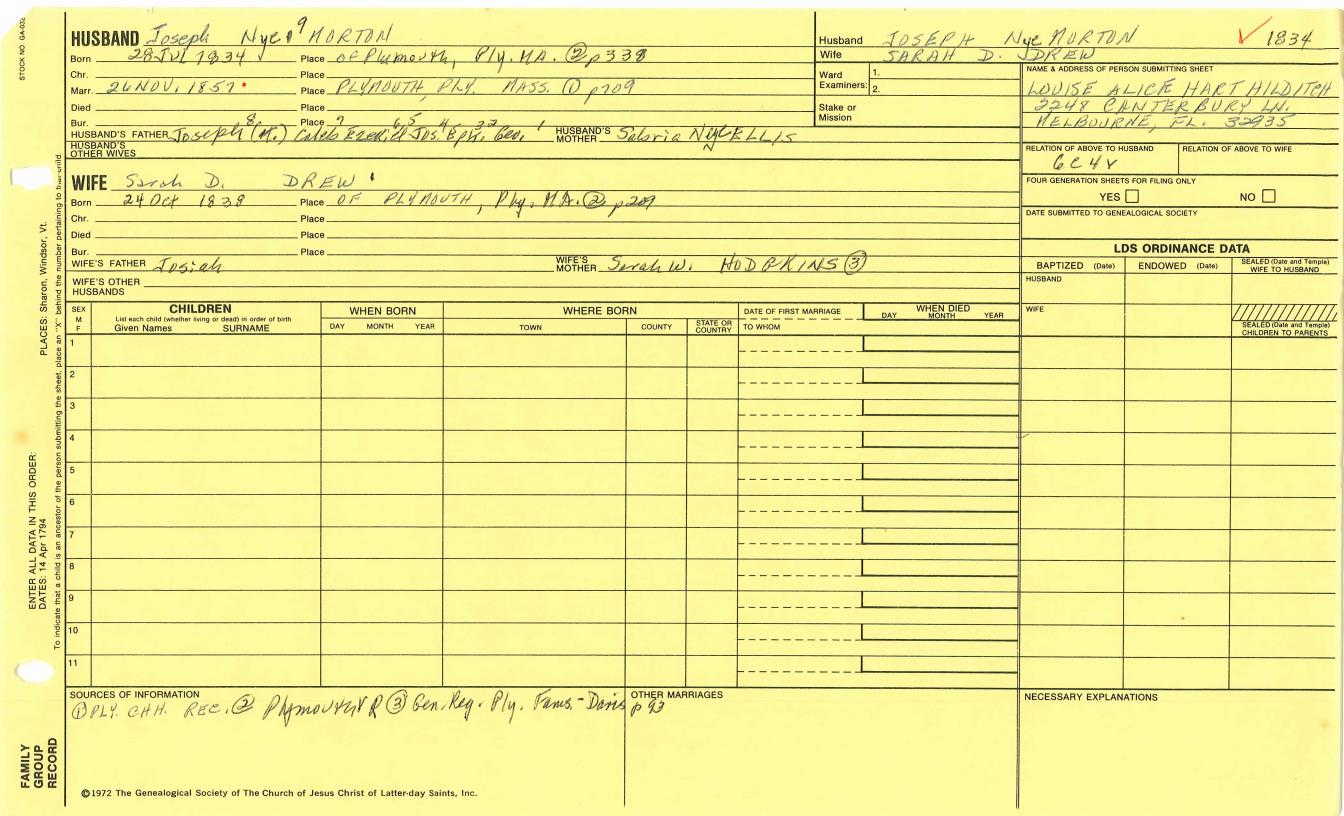 STOCK NO. GA-032
HUSBAND Joseph Nye 9 MORTON
Born 28 Jul 1834 Place of Plymouth, Ply. MA. ② p338
Chr. Place
Marr. 26 NOV. 1857 Place PLYMOUTH, PLY. MASS. ① p709
Died Place
Bur. Place
HUSBAND'S FATHER Joseph 8 (M.) Caleb 7 Ezekiel 6 Jos. 5 Eph. 4 Geo. 1 HUSBAND'S MOTHER Nye ELLIS
HUSBAND'S OTHER WIVES
WIFE Sarah D. DREW
Born 24 Oct 1838 Place OF PLYMOUTH, Ply. MA. ② p209
Chr. Place
Died Place
Bur. Place
WIFE'S FATHER Josiah WIFE'S MOTHER Sarah W. HODGKINS ③
WIFE'S OTHER HUSBANDS
Husband JOSEPH Nye MORTON ✓ 1834
Wife SARAH D. DREW
Ward Examiners: 1.
2.
Stake or Mission
NAME & ADDRESS OF PERSON SUBMITTING SHEET
LOUISE ALICE HART HILDITCH
2248 CANTERBURY LN.
MELBOURNE, FL. 32935
RELATION OF ABOVE TO HUSBAND RELATION OF ABOVE TO WIFE
6C4r
FOUR GENERATION SHEETS FOR FILING ONLY
YES NO
DATE SUBMITTED TO GENEALOGICAL SOCIETY
LDS ORDINANCE DATA
BAPTIZED (Date) ENDOWED (Date) SEALED (Date and Temple) WIFE TO HUSBAND
HUSBAND
WIFE
SEALED (Date and Temple) CHILDREN TO PARENTS
SEX M F
CHILDREN
List each child (whether living or dead) in order of birth
Given Names SURNAME
WHEN BORN
DAY MONTH YEAR
WHERE BORN
TOWN COUNTY STATE OR COUNTRY
DATE OF FIRST MARRIAGE
TO WHOM
WHEN DIED
DAY MONTH YEAR
1
2
3
4
5
6
7
8
9
10
11
SOURCES OF INFORMATION
① PLY. CHH. REC. ② Plymouth VR ③ Gen. Reg. Ply. Fams. - Davis p 93
OTHER MARRIAGES
NECESSARY EXPLANATIONS
©1972 The Genealogical Society of The Church of Jesus Christ of Latter-day Saints, Inc.
PLACES: Sharon, Windsor, Vt.
ENTER ALL DATA IN THIS ORDER:
DATES: 14 Apr 1794
To indicate that a child is an ancestor of the person submitting the sheet, place an "X" behind the number pertaining to that child.
FAMILY
GROUP
RECORD